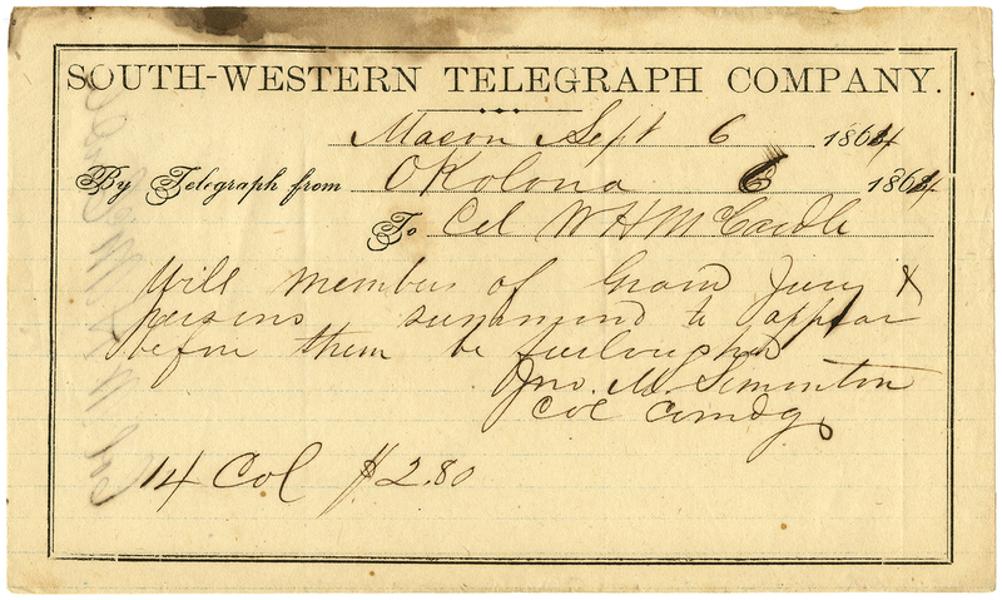 SOUTH-WESTERN TELEGRAPH COMPANY.
Macon Sept 6 1864
By Telegraph from Okolona 6 1864
To Col W H McCardle
Will members of Grand Jury &
persons summond to appear
before them be furloughed
Jno. M. Simonton
Col Comdg
14 Col $2.80